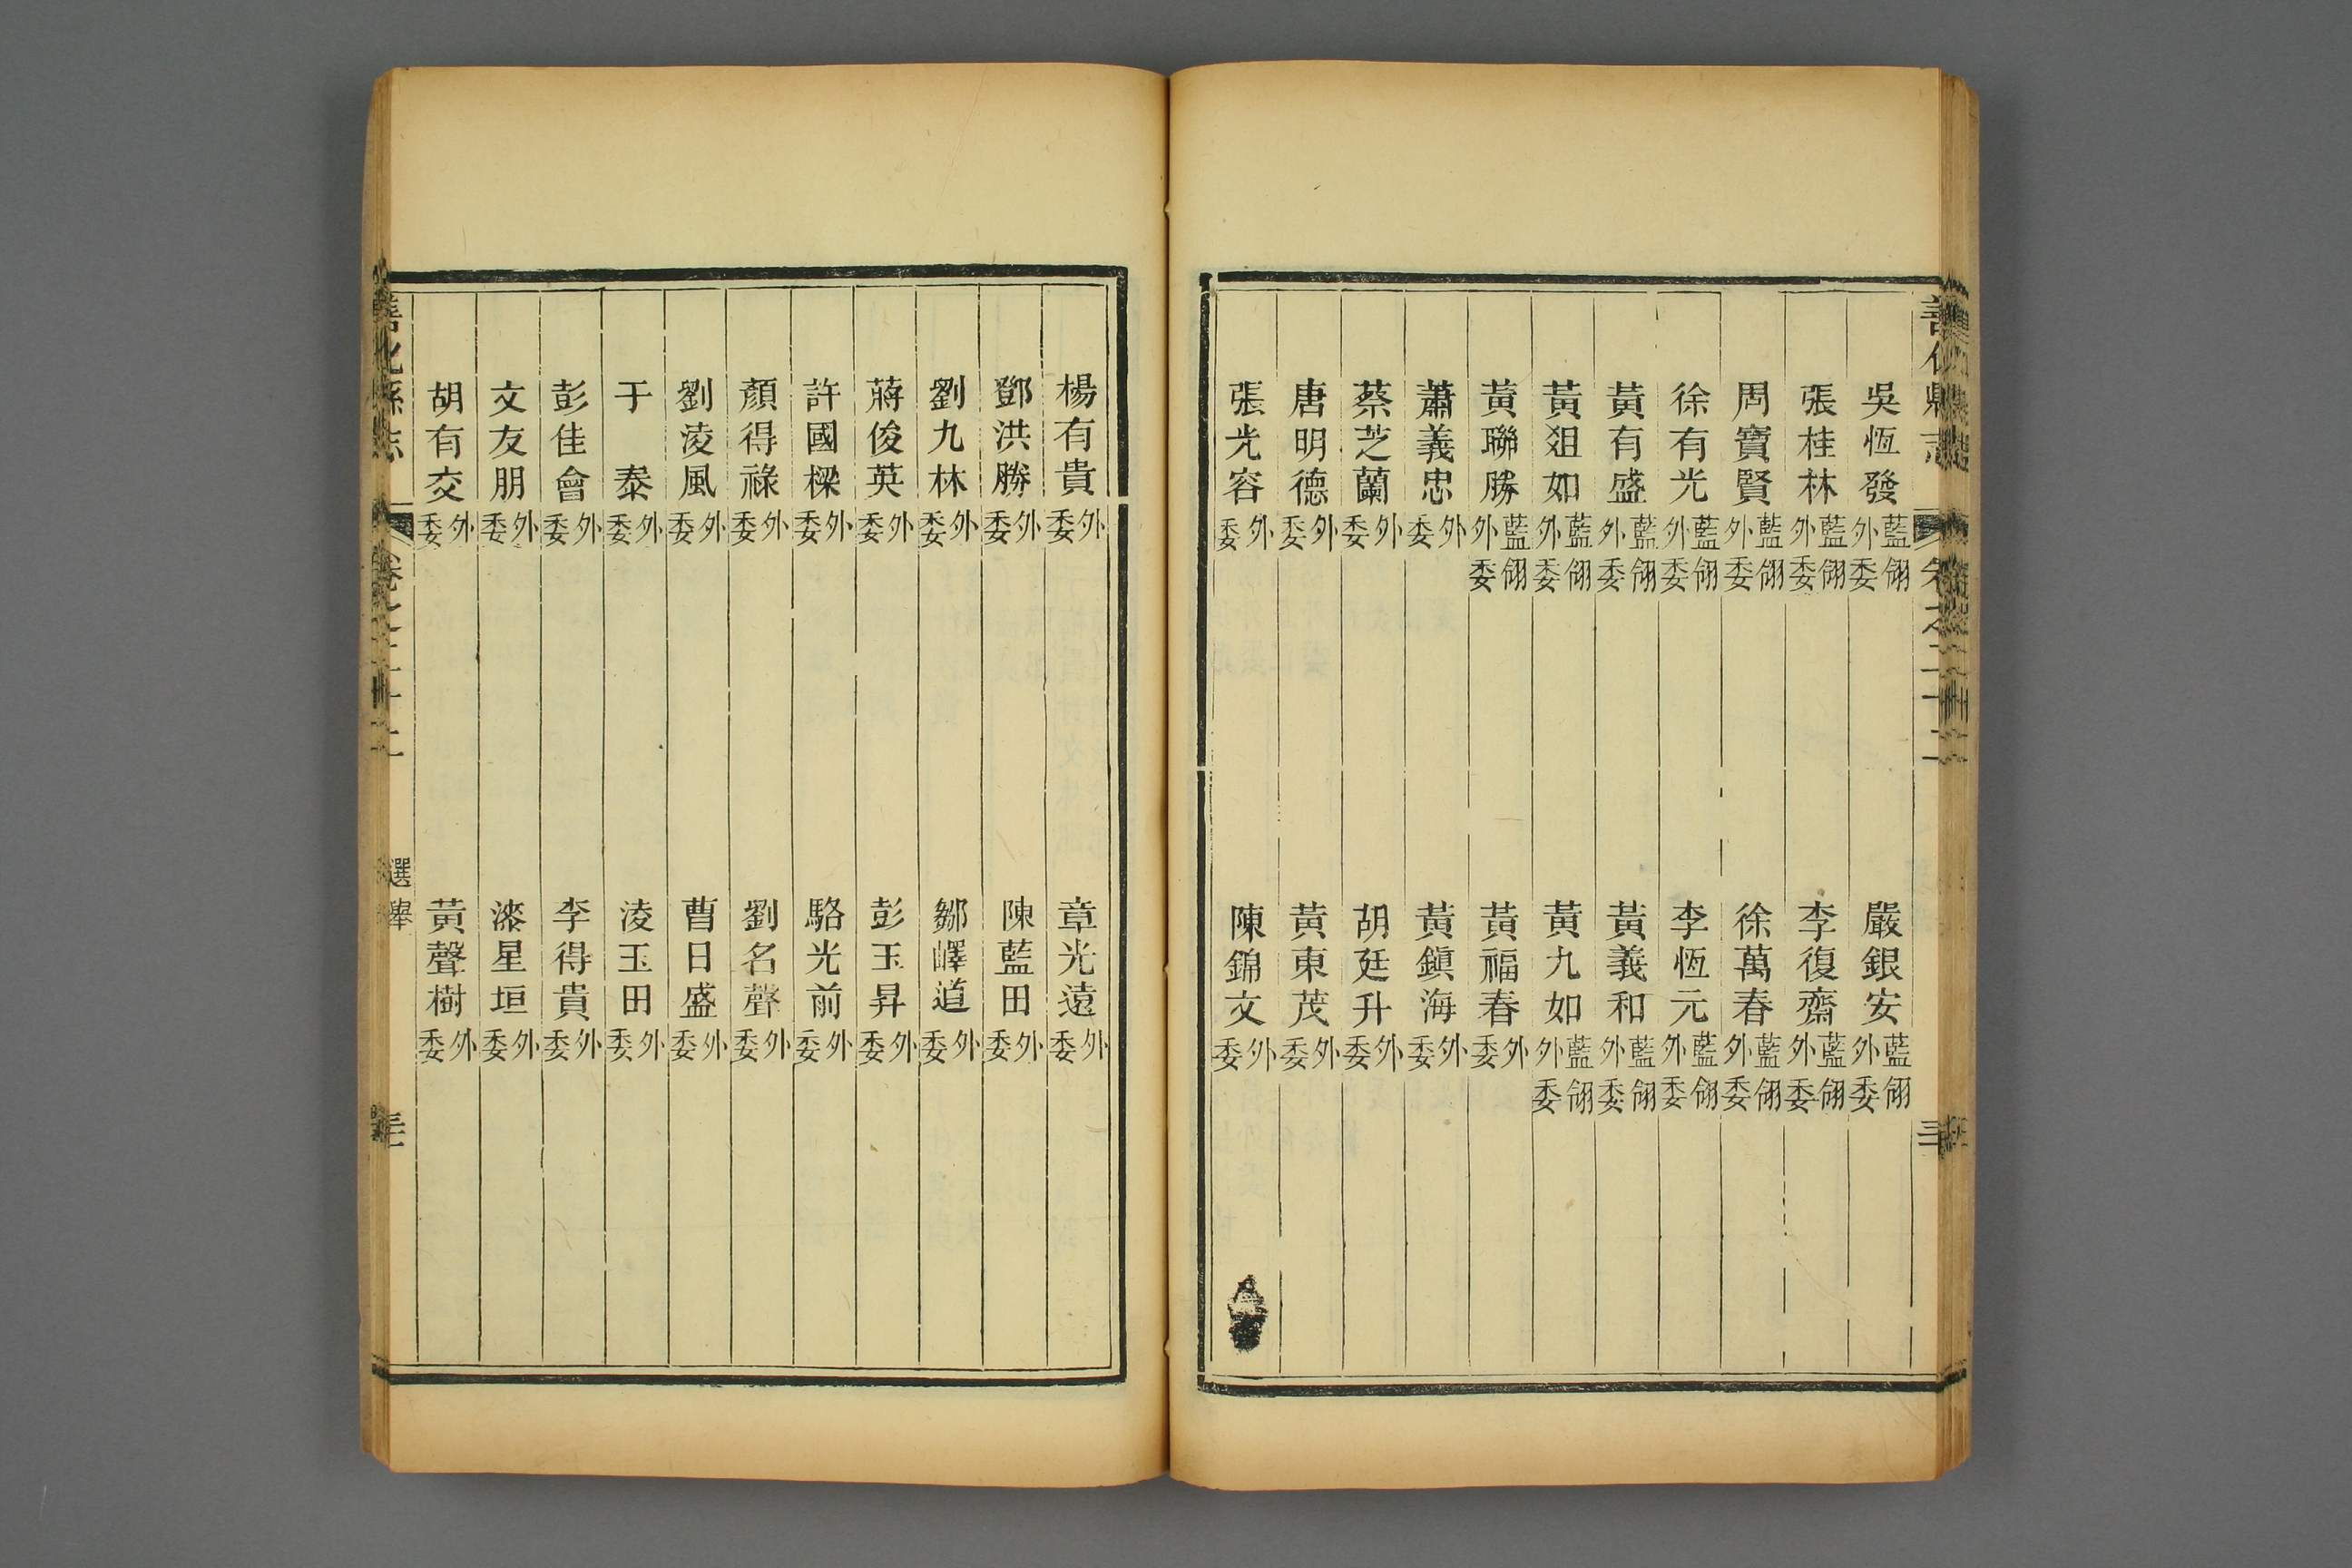 吳恆發藍翎外委 嚴銀安藍翎外委
張桂林藍翎外委 李復齋藍翎外委
周寶賢藍翎外委 徐萬春藍翎外委
徐有光藍翎外委 李恆元藍翎外委
黃有盛藍翎外委 黃義和藍翎外委
黃爼如藍翎外委 黃九如藍翎外委
黃聯勝藍翎外委 黃福春外委
蕭義忠外委 黃鎭海外委
蔡芝蘭外委 胡廷升外委
唐明德外委 黃東茂外委
張光容外委 陳錦文外委
楊有貴外委 章光遠外委
鄧洪勝外委 陳藍田外委
劉九林外委 鄒嶧道外委
蔣俊英外委 彭玉昇外委
許國樑外委 駱光前外委
顏得祿外委 劉名聲外委
劉淩風外委 曹日盛外委
于泰外委 淩玉田外委
彭佳會外委 李得貴外委
文友朋外委 漆星垣外委
胡有交外委 黃聲樹外委
善化縣志 卷之二十二 選舉